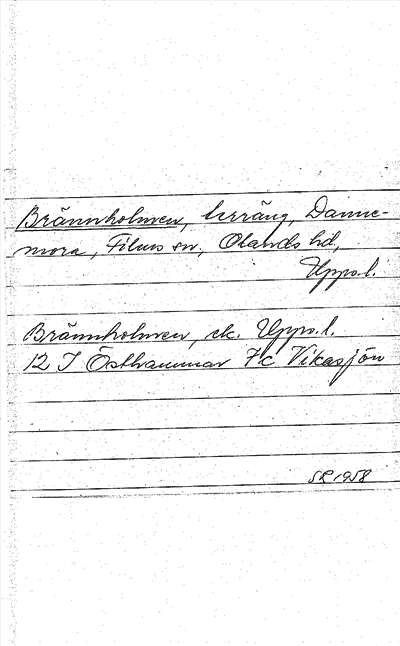 Brännholmen, terräng, Danne-
mora, Films sn, Olands hd,
Upps.l.
Brännholmen, ek. Upps.l.
12 I Östhammar 7c Vikasjön
SR 1958